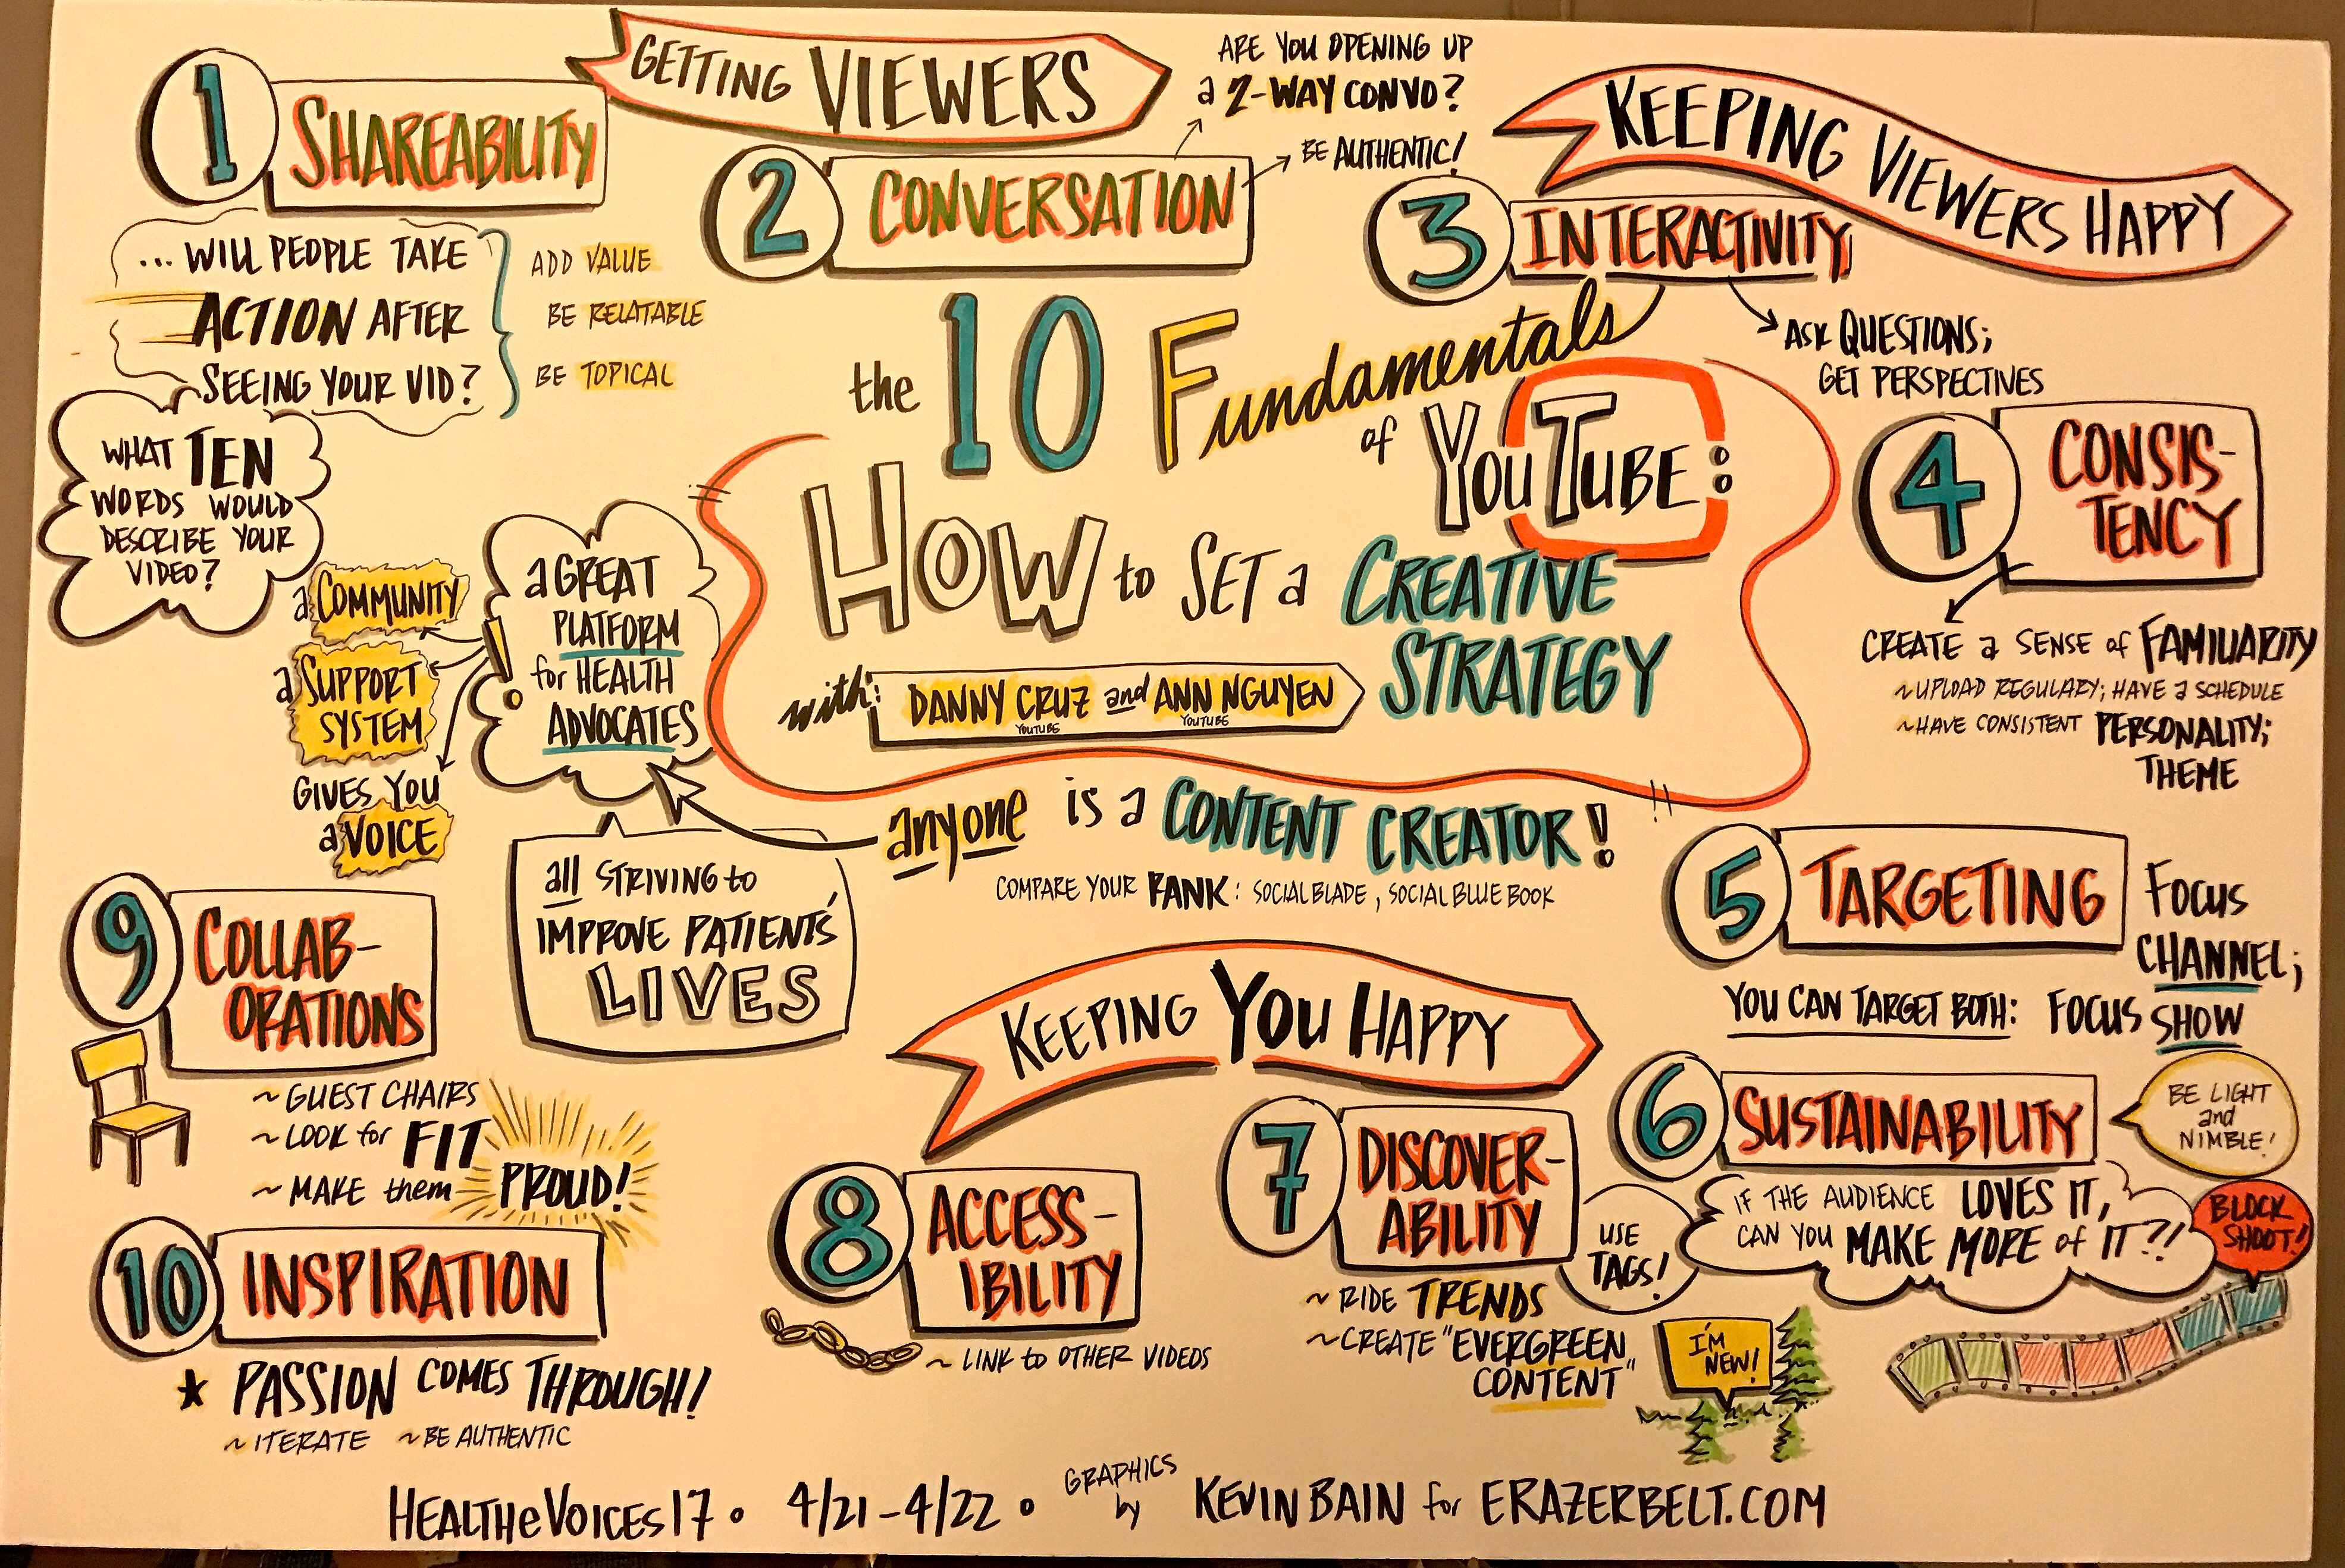 GETTING VIEWERS
1
SHAREABILITY
... WILL PEOPLE TAKE
ACTION AFTER
SEEING YOUR VID?
ADD VALUE
BE RELATABLE
BE TOPICAL
WHAT TEN
WORDS WOULD
DESCRIBE YOUR
VIDEO?
2
CONVERSATION
ARE YOU OPENING UP
a 2-WAY CONVO?
BE AUTHENTIC!
KEEPING VIEWERS HAPPY
3
INTERACTIVITY
ASK QUESTIONS;
GET PERSPECTIVES
the 10 Fundamentals
of YOUTUBE:
HOW to SET a CREATIVE
STRATEGY
with: DANNY CRUZ and ANN NGUYEN
YOUTUBE
YOUTUBE
a GREAT
PLATFORM
for HEALTH
ADVOCATES
!
a COMMUNITY
a SUPPORT
SYSTEM
GIVES YOU
a VOICE
all STRIVING to
IMPROVE PATIENTS'
LIVES
anyone is a CONTENT CREATOR!
COMPARE YOUR RANK: SOCIALBLADE, SOCIAL BLUE BOOK
4
CONSIS-
TENCY
CREATE a SENSE of FAMILIARITY
~UPLOAD REGULARY; HAVE a SCHEDULE
~HAVE CONSISTENT PERSONALITY;
THEME
5
TARGETING
FOCUS
CHANNEL;
YOU CAN TARGET BOTH: FOCUS SHOW
KEEPING YOU HAPPY
6
SUSTAINABILITY
BE LIGHT
and
NIMBLE!
IF THE AUDIENCE LOVES IT,
CAN YOU MAKE MORE of IT?!
BLOCK
SHOOT!
7
DISCOVER-
ABILITY
USE
TAGS!
~ RIDE TRENDS
~CREATE "EVERGREEN
CONTENT"
I'M
NEW!
8
ACCESS-
IBILITY
~ LINK to OTHER VIDEOS
9
COLLAB-
ORATIONS
~ GUEST CHAIRS
~ LOOK for FIT
~ MAKE them PROUD!
10
INSPIRATION
* PASSION COMES THROUGH!
~ ITERATE ~BE AUTHENTIC
HEALTHeVOICES17 • 4/21-4/22 • GRAPHICS by KEVIN BAIN for ERAZERBELT.COM